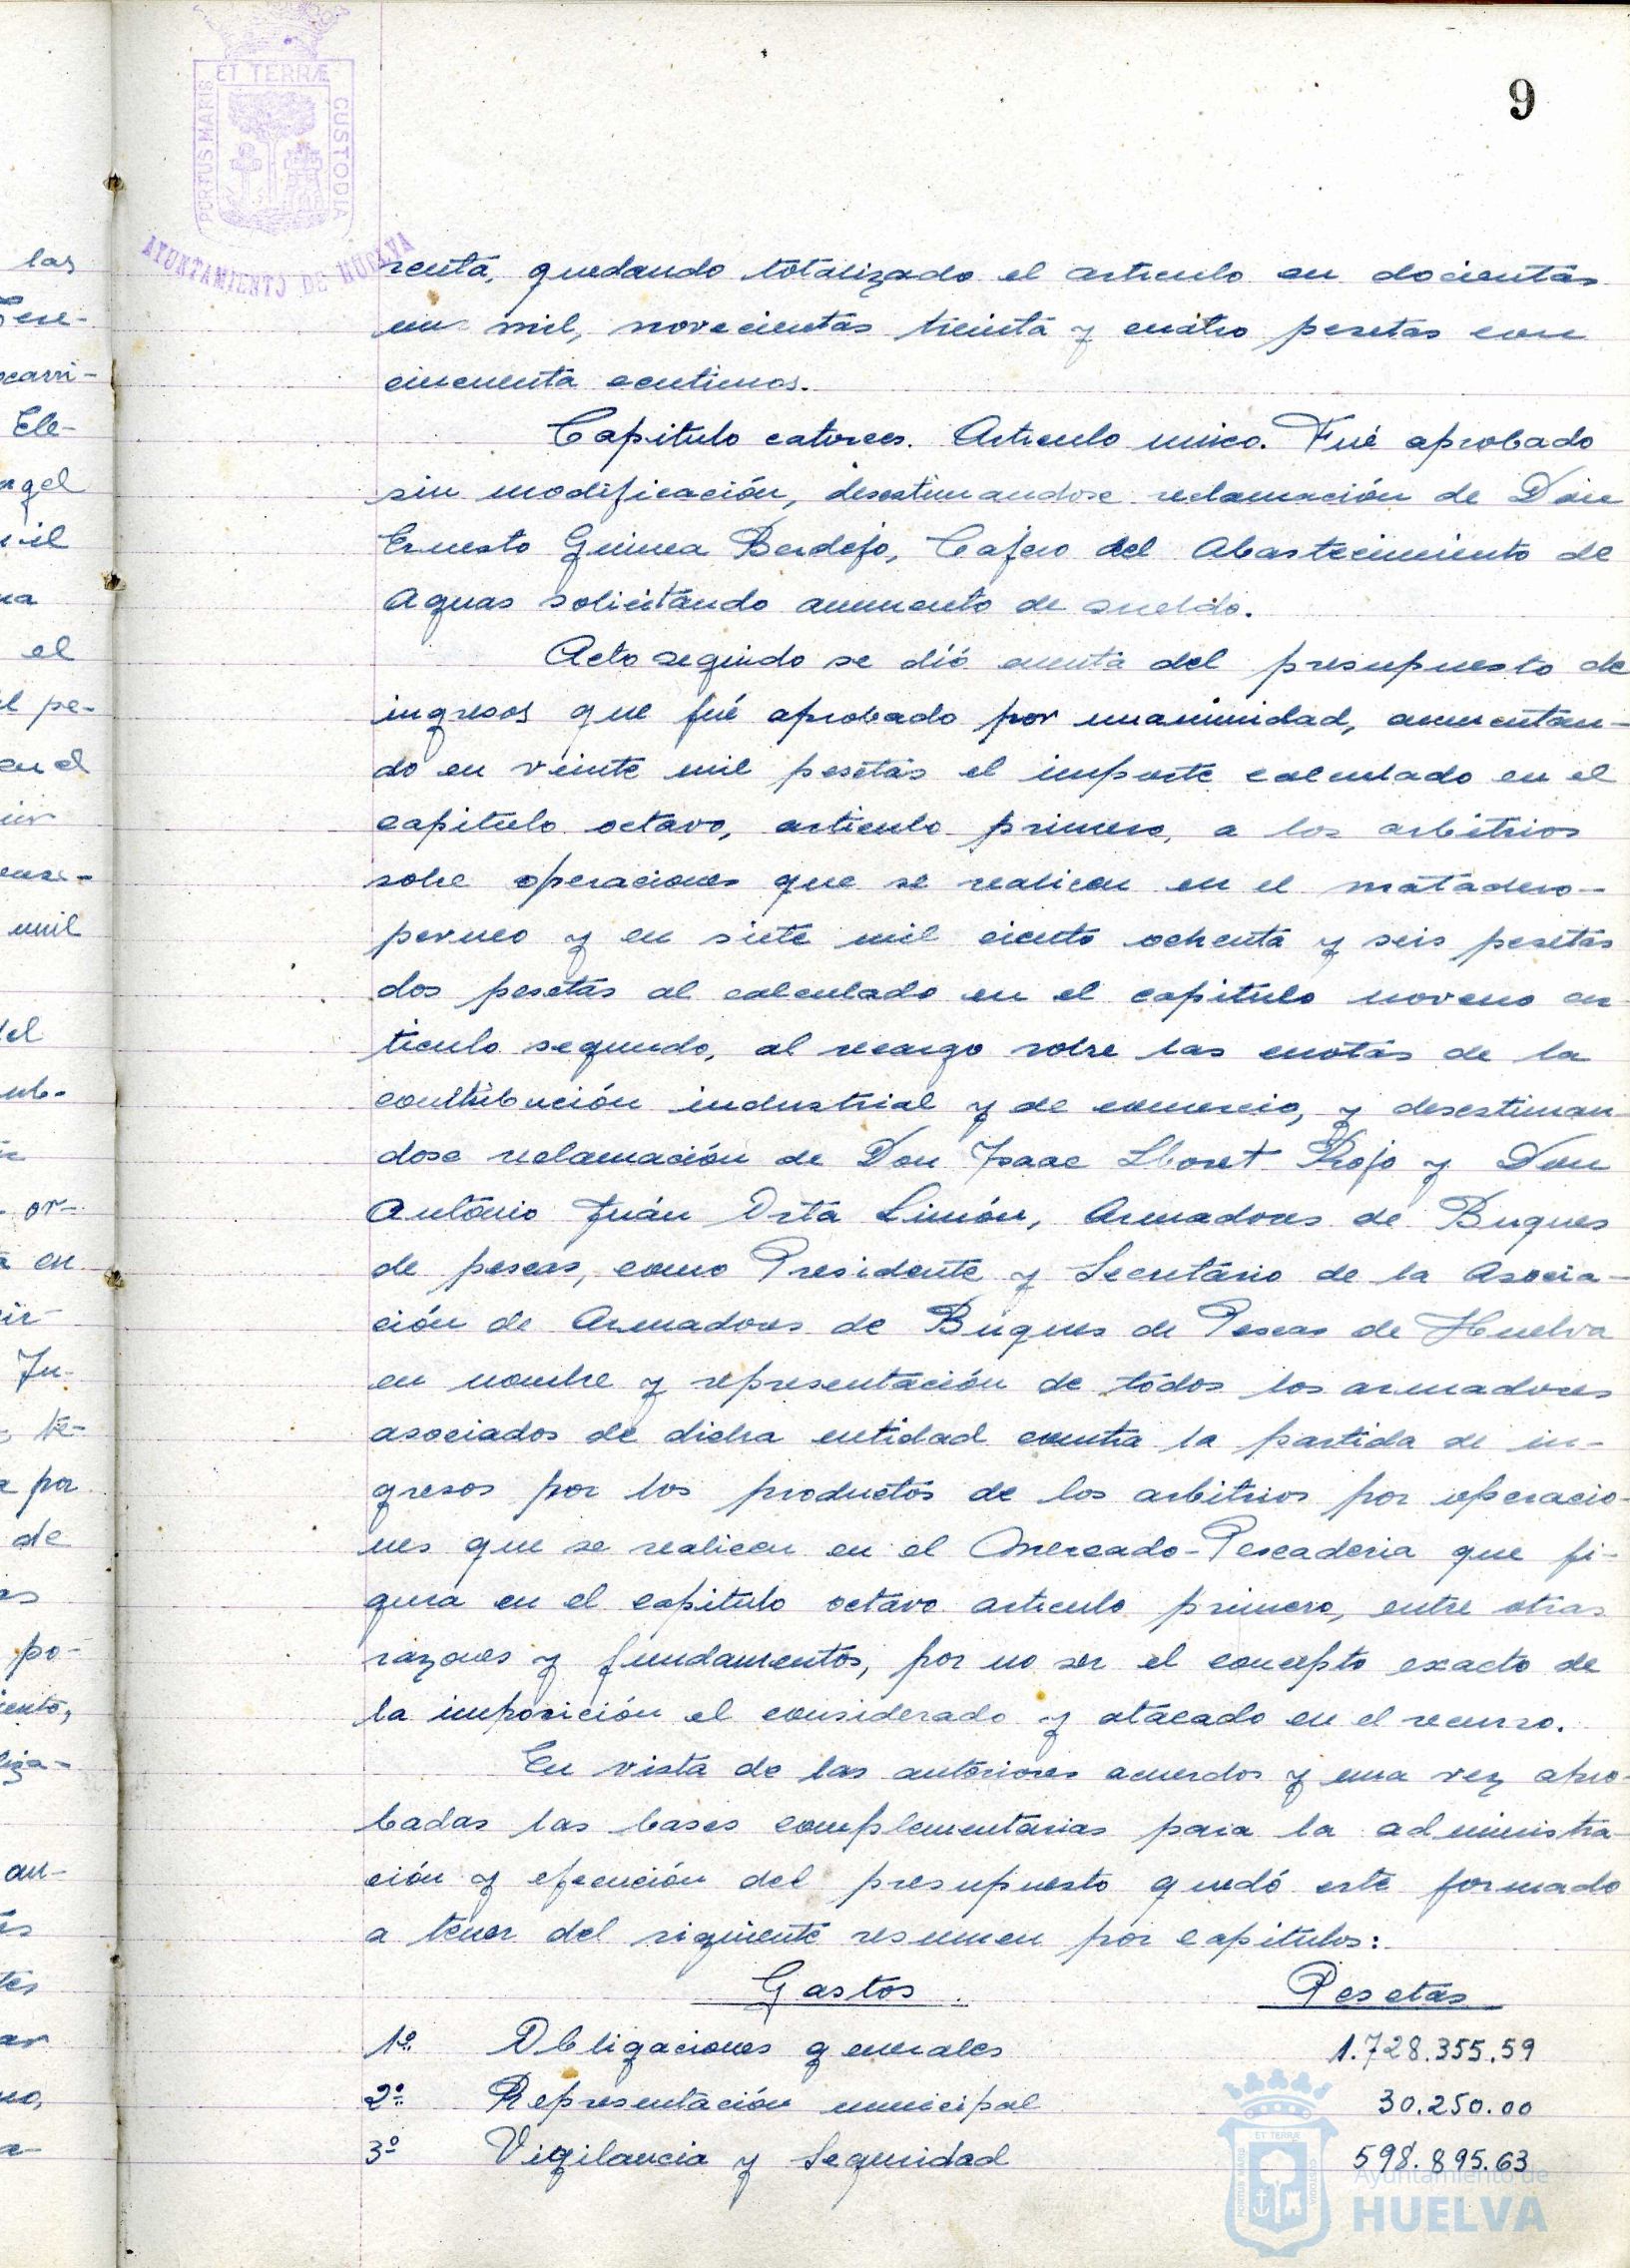 9
ET TERRÆ
PORTUS MARIS
CUSTODIA
AYUNTAMIENTO DE HUELVA
renta, quedando totalizado el articulo en docientas
un mil, novecientas treinta y cuatro pesetas con
cincuenta centimos.
Capitulo catorce. Articulo unico. Fué aprobado
sin modificación, desestimandose reclamación de Don
Ernesto Guinea Berdejo, Cajero del Abastecimiento de
Aguas solicitando aumento de sueldo.
Acto seguido se dió cuenta del presupuesto de
ingresos que fué aprobado por unanimidad, aumentan-
do en veinte mil pesetas el importe calculado en el
capitulo octavo, articulo primero, a los arbitrios
sobre operaciones que se realicen en el matadero-
perneo y en siete mil ciento ochenta y seis pesetas
dos pesetas al calculado en el capitulo noveno ar
ticulo segundo, al recargo sobre las cuotas de la
contribución industrial y de comercio, y desestiman
dose reclamación de Don Isaac Lloret Rojo y Don
Antonio Juán Orta Limón, Armadores de Buques
de pescas, como Presidente y Secretario de la Asocia-
ción de Armadores de Buques de Pescas de Huelva
en nombre y representación de todos los armadores
asociados de dicha entidad contra la partida de in-
gresos por los productos de los arbitrios por operacio-
nes que se realicen en el Mercado-Pescaderia que fi-
gura en el capitulo octavo articulo primero, entre otras
razones y fundamentos, por no ser el concepto exacto de
la imposición el considerado y atacado en el recurso.
En vista de las anteriores acuerdos y una vez apro-
badas las bases complementarias para la administra-
ción y ejecución del presupuesto quedó este formado
a tenor del siguiente resumen por capitulos:
Gastos. Pesetas
1º Obligaciones generales 1.728.355.59
2º Representación municipal 30.250.00
3º Vigilancia y Seguridad 598.895.63
Ayuntamiento de
HUELVA
las
carri-
Ele-
el
pe-
en el
mil
del
or-
en
Ju-
por
de
po-